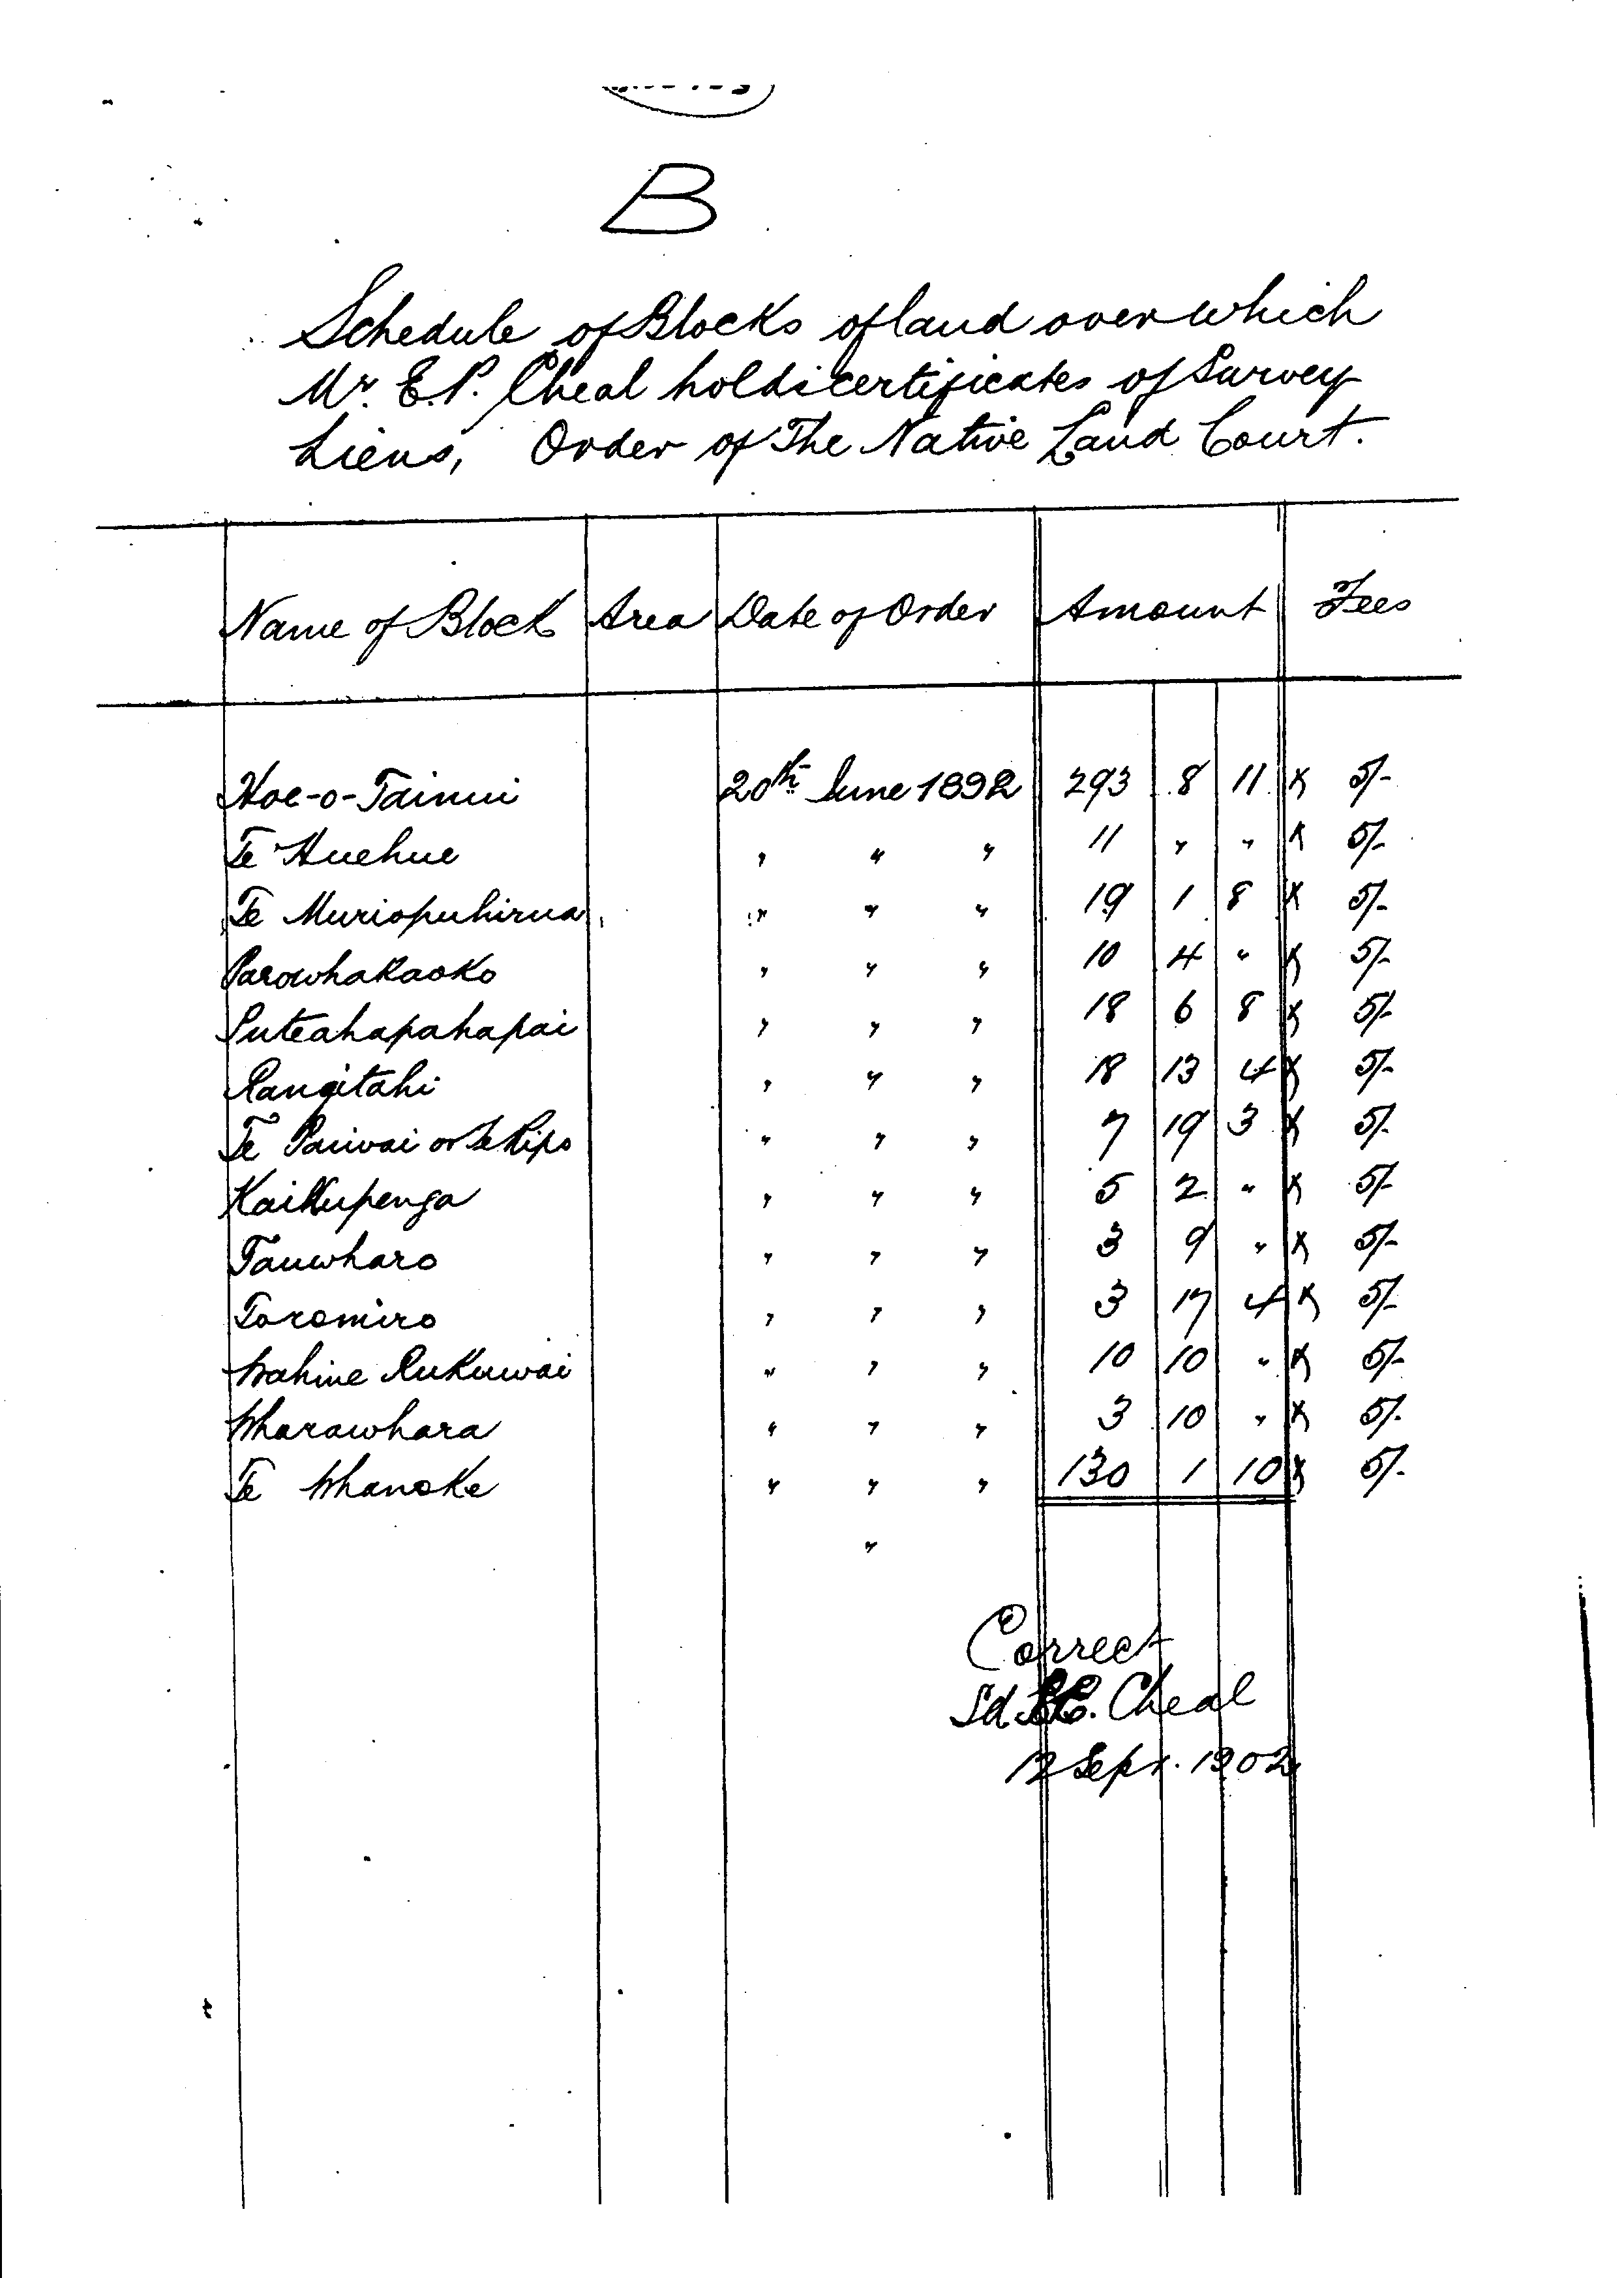 B
Schedule of Blocks of land over which
Mr. E.P. Cheal holds certificates of Survey
Liens, Order of The Native Land Court.
Name of Block Area Date of Order Amount Fees
Hoe-o-Tainui 20th June 1892 293 8 11 x 5/-
Te Huehue " " " 11 " " x 5/-
Te Muriopuhirua " " " 19 1 8 x 5/-
Parowhakaoko " " " 10 4 " x 5/-
Puteahapahapai " " " 18 6 8 x 5/-
Rangitahi " " " 18 13 4 x 5/-
Te Pariwai or Te Ripo " " " 7 19 3 x 5/-
Kaikupenga " " " 5 2 " x 5/-
Tauwharo " " " 3 9 " x 5/-
Toromiro " " " 3 17 4 x 5/-
Wahine Rukuwai " " " 10 10 " x 5/-
Wharawhara " " " 3 10 " x 5/-
Te Whanoke " " " 130 1 10 x 5/-
"
Correct
Sd. Cheal
12 Sept. 1902